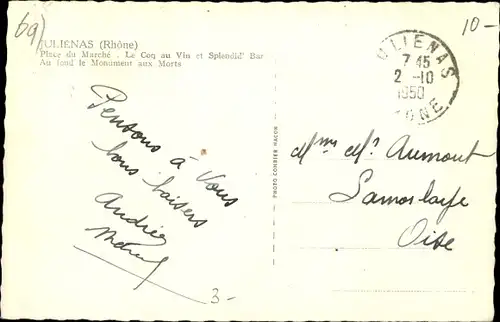 69)
JULIÉNAS (Rhône)
Place du Marché - Le Coq au Vin et Splendid' Bar
Au fond le Monument aux Morts
10-
JULIENAS
7 45
2 -10
1950
RHONE
Pensons à Vous
bons baisers
Andrée
Marcel
PHOTO COMBIER MACON
Mme Mr Aumont
Lamorlaye
Oise
3-